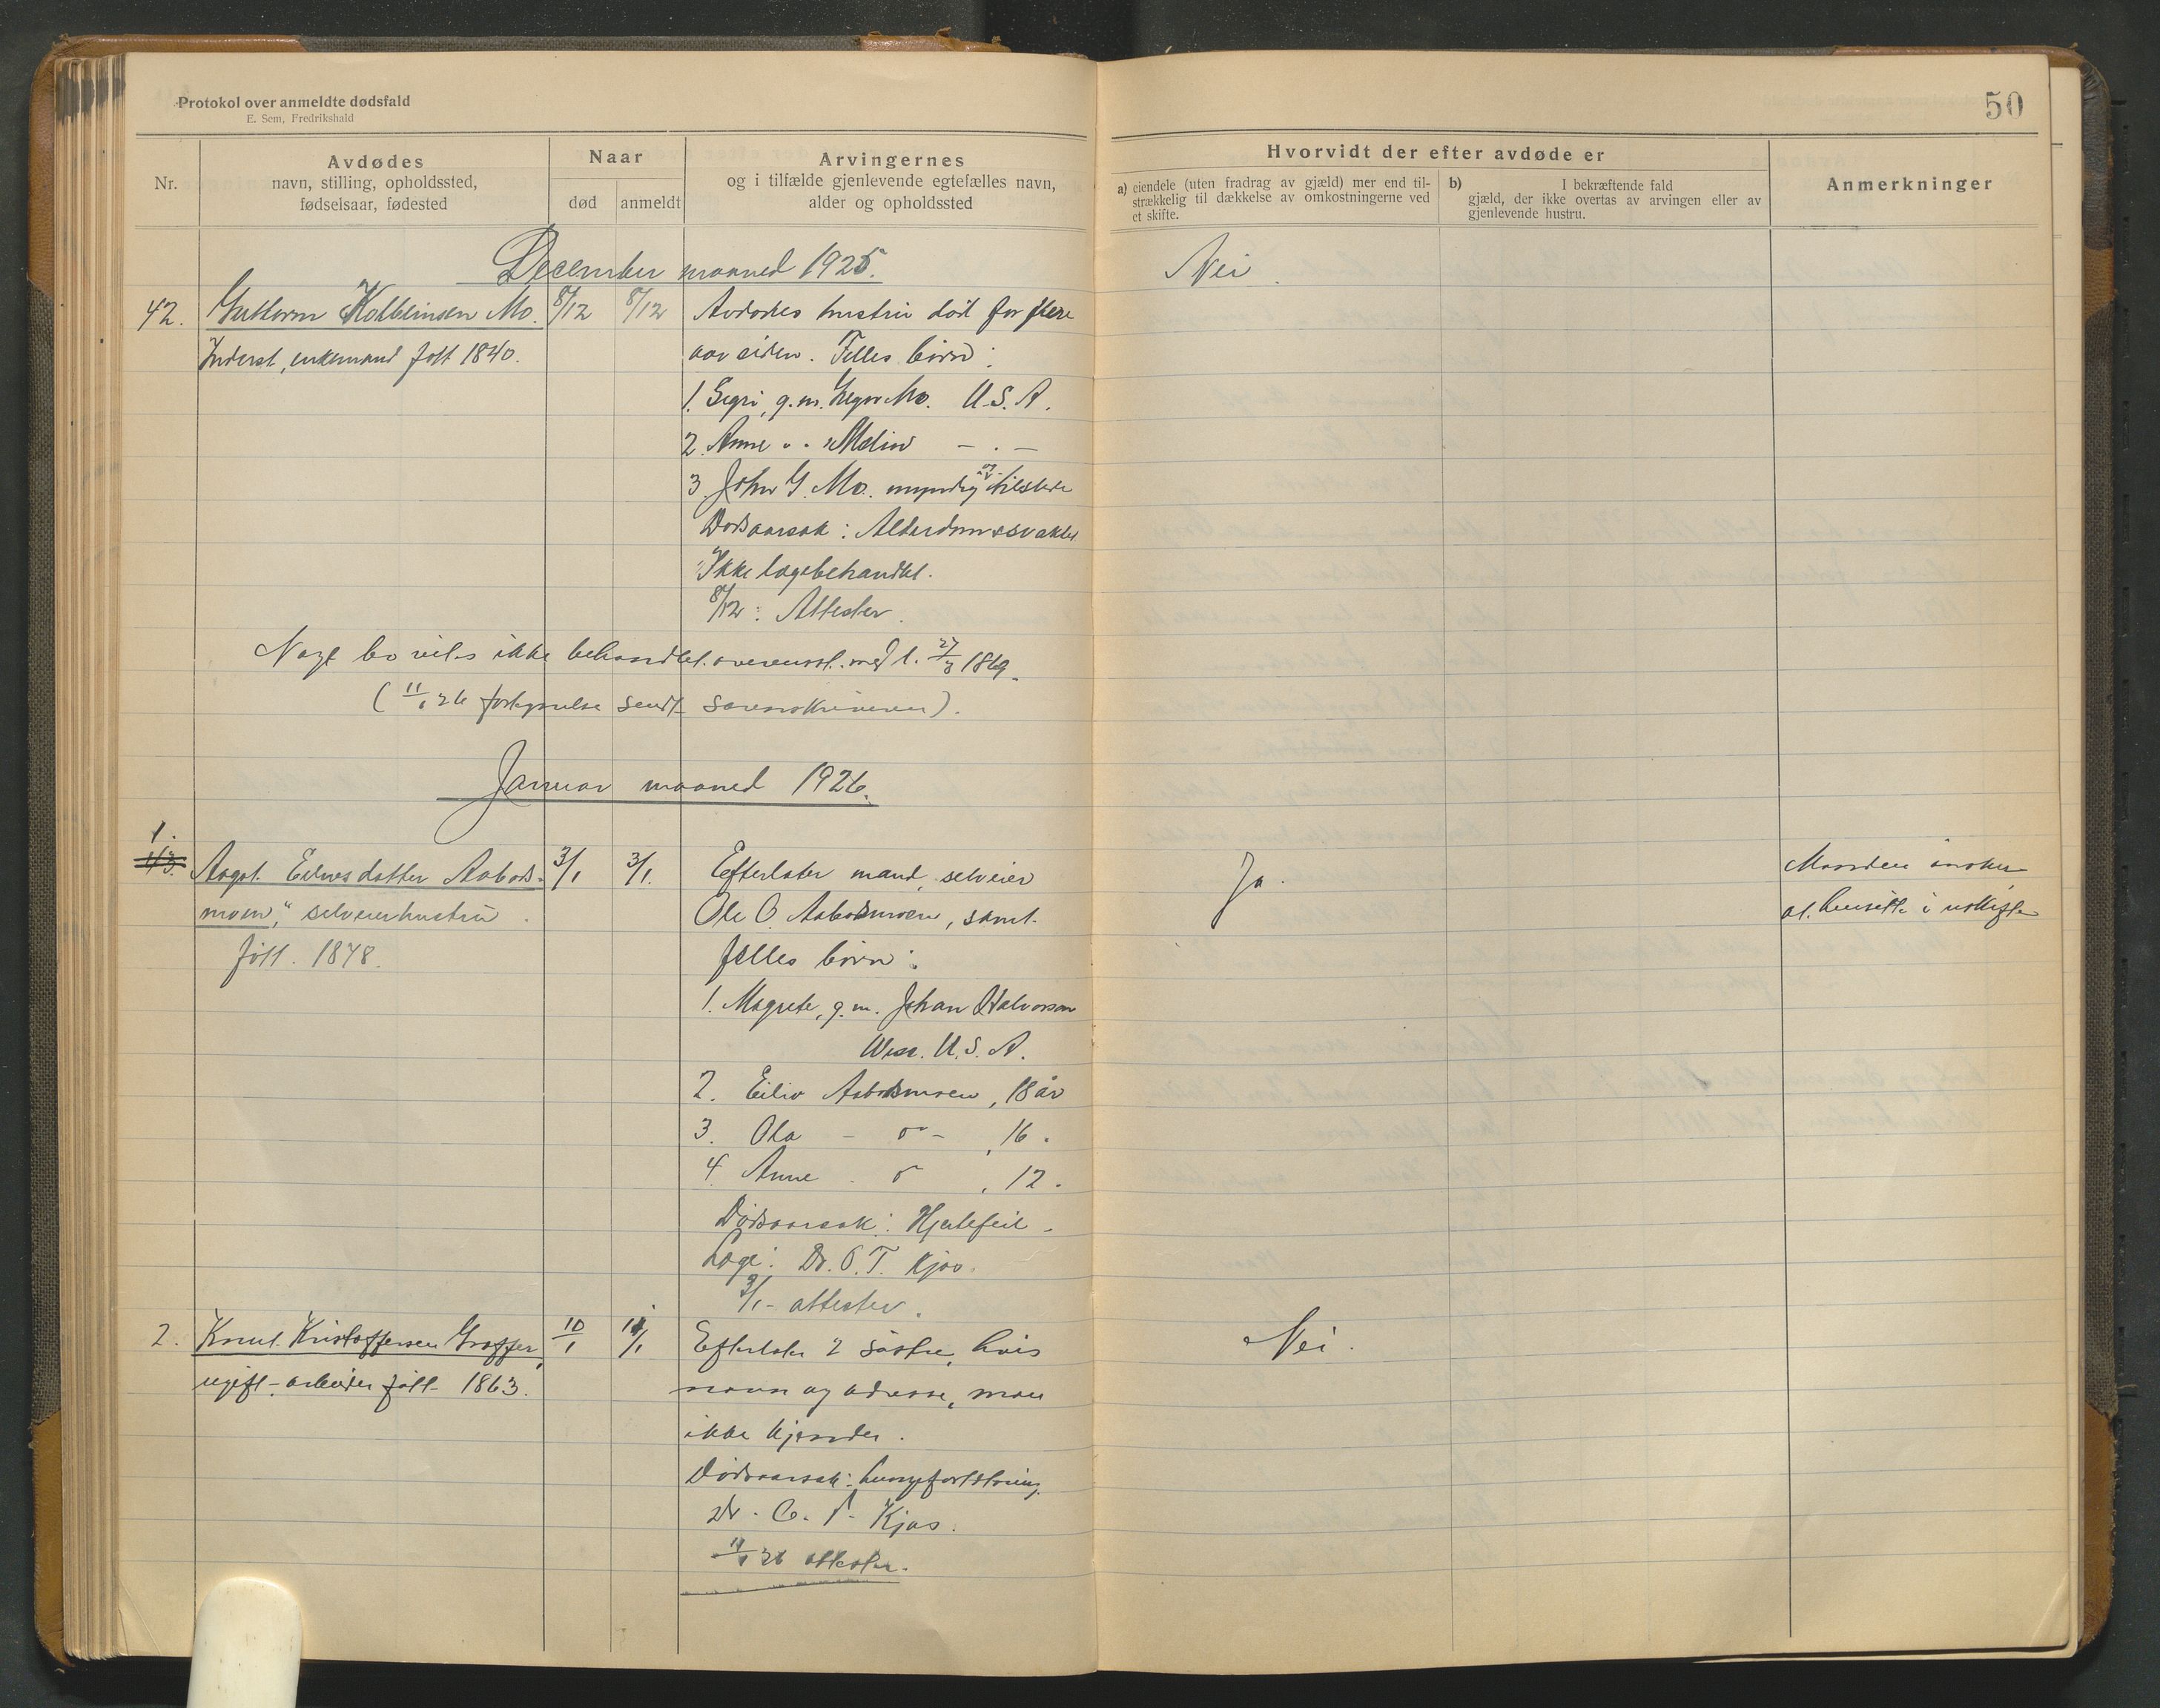 Protokol over anmeldte dødsfald
E. Sem, Fredrikshald
50
Nr.
Avdødes
navn, stilling, opholdssted,
fødselsaar, fødested
Naar
død
anmeldt
Arvingernes
og i tilfælde gjenlevende egtefælles navn,
alder og opholdssted
Hvorvidt der efter avdøde er
a) eiendele (uten fradrag av gjæld) mer end til-
strækkelig til dækkelse av omkostningerne ved
et skifte.
b) I bekræftende fald
gjæld, der ikke overtas av arvingen eller av
gjenlevende hustru.
Anmerkninger
December maaned 1925.
Nei
42. Guttorm Kolbeinsen Mo. 8/12 8/12 Avdødes hustru død for flere
Inderst, enkemand født 1840. aar siden. Felles børn:
1. Sigri, g.m. Mo. U.S.A.
2. Anne " " Melin — . —
3. John G. Mo. myndig og tilstede
Dødsaarsak: Alderdomssvakhet
Ikke lægebehandlet.
8/12: Attester.
bo vites ikke behandlet. overensst. med l. 27/3 1869.
(11/1 26 sendt sorenskriveren).
Januar maaned 1926.
1.
43. Aagot Eilivsdatter Aabods- 3/1 3/1. Efterlater mand, selveier
moen," selveierhustru. Ole O. Aabodsmoen, samt
født. 1878. felles børn:
Ja.
Manden ønsker
at hensitte i uskifte
1. Magrete, g.m. Johan Halvorson
Wisc. U.S.A.
2. Eiliv Aabodsmoen, 18 år
3. Ola - o - , 16 "
4. Anne - o , 12 "
Dødsaarsak: Hjertefeil.
Læge: Dr. O. T. Kjos.
3/1 - attester.
2. Knut Kristoffersen Graffer, 10/1 11/1 Efterlater 2 søstre, hvis
ugift - arbeider født 1863. navn og adresse, man
ikke kjender.
Nei.
Dødsaarsak:
Dr. O. T. Kjos.
11/1 26 attester.